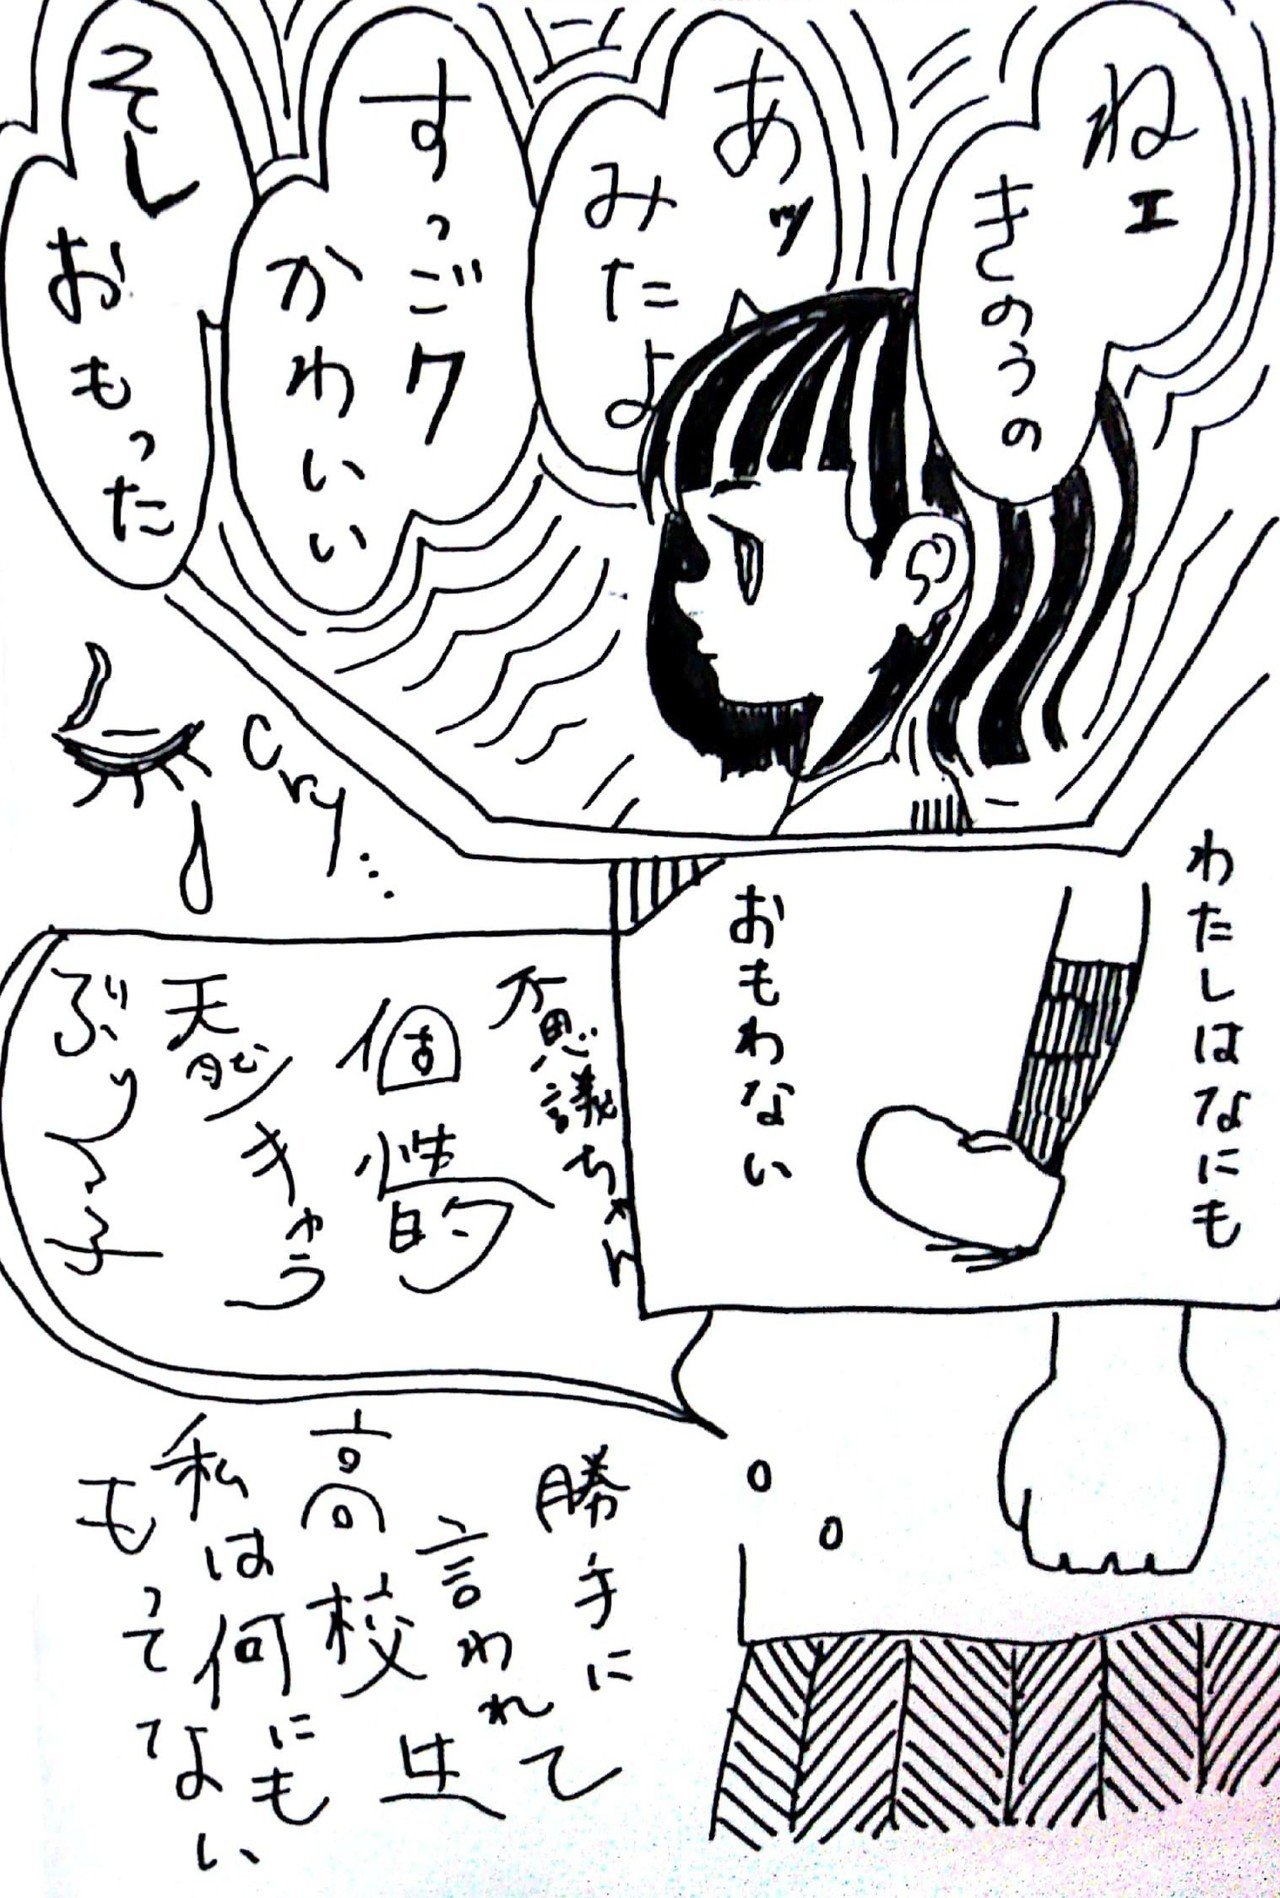 ねェ
きのうの
あッ
みたよ
すっごク
かわいい
そし
おもった
Cry...
わたしはなにも
おもわない
不思議ちゃん
個性的
天然ちゃう
ぶりっ子
勝手に
言われて
高校生
私は何にも
もってない